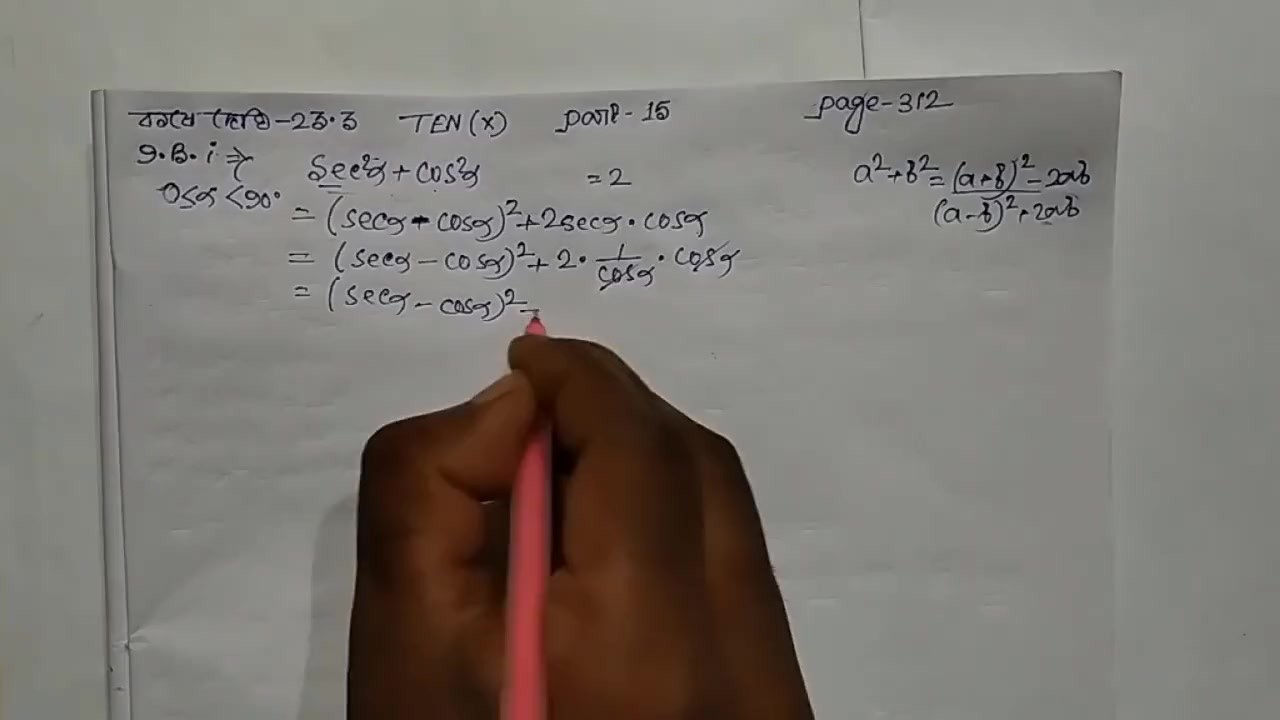 কষে দেখি-23.3 TEN(X) part-15 page-312
9.B.i ⇒ sec²α + cos²α = 2
0≤α<90°
= (secα - cosα)² + 2secα·cosα
= (secα - cosα)² + 2·1/cosα·cosα
= (secα - cosα)²
a²+b² = (a+b)² - 2ab
(a-b)² + 2ab